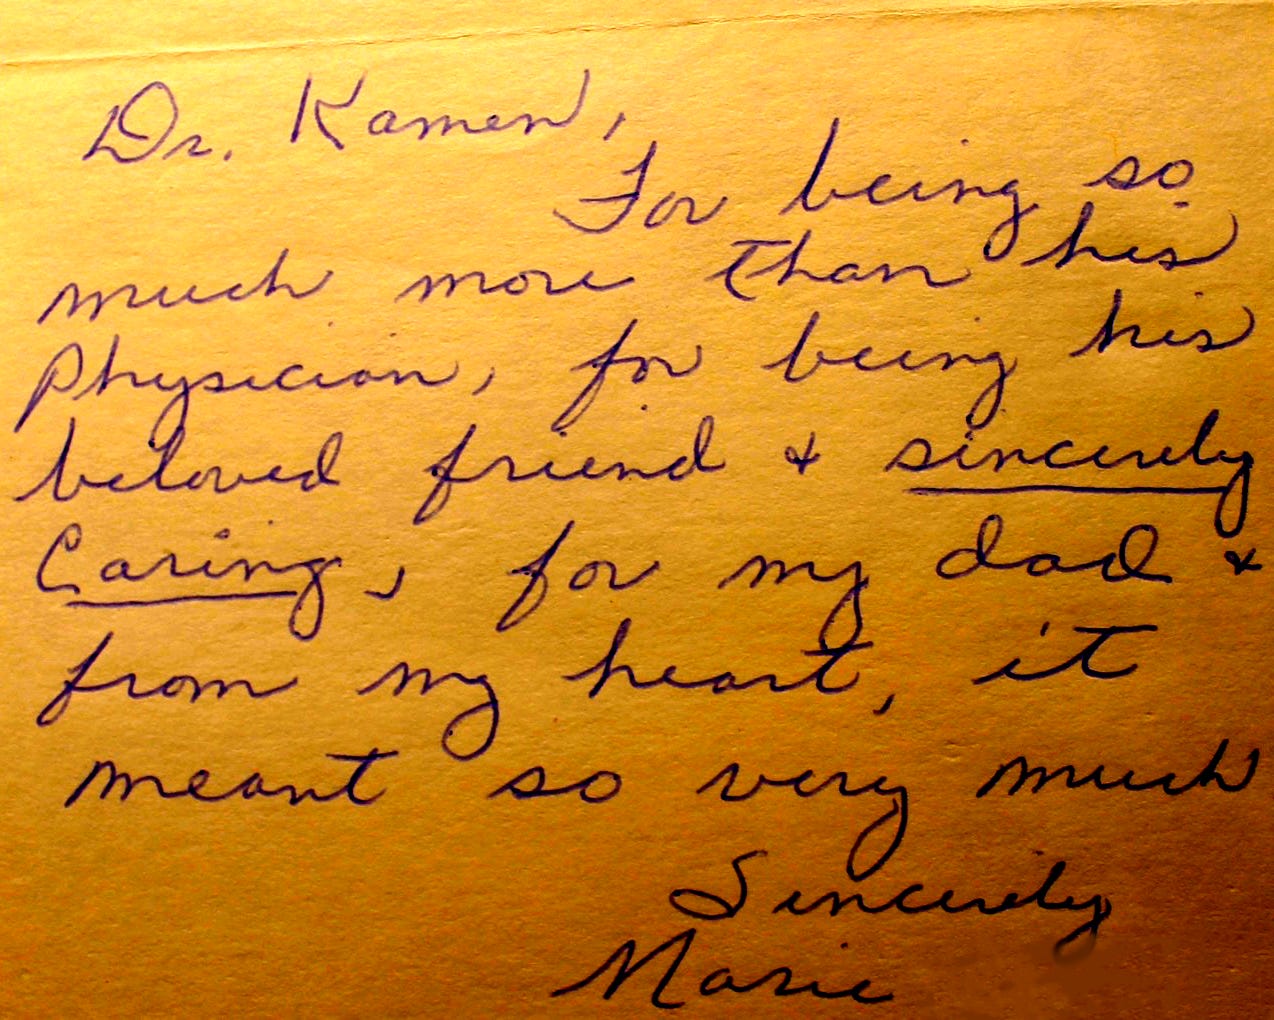 Dr. Kamen,
For being so
much more than his
Physician, for being his
beloved friend & sincerely
Caring, for my dad &
from my heart, it
meant so very much
Sincerely
Marie